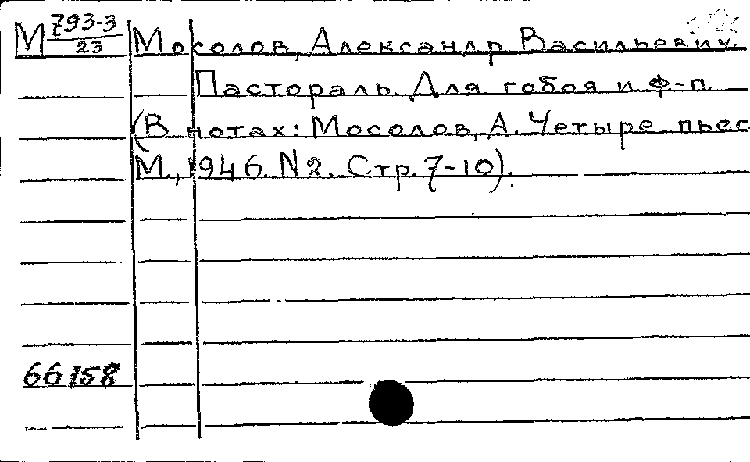 М 793-3/23 Мосолов, Александр Васильевич.
Пастораль. Для гобоя и ф-п.
(В нотах: Мосолов, А. Четыре пьес
М., 1946. N2. Стр. 7-10).
66158